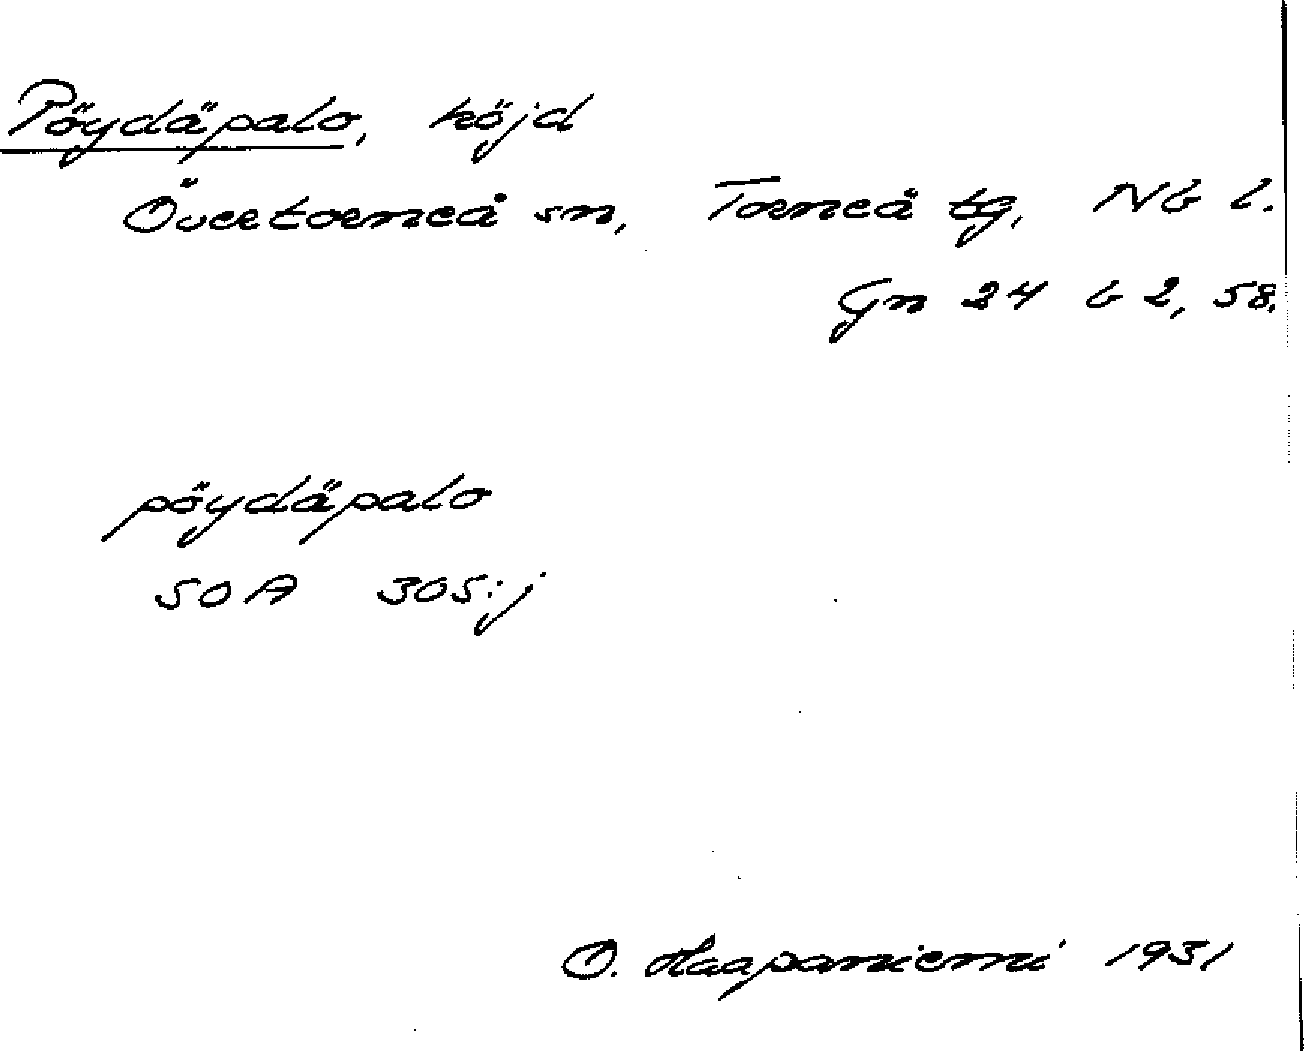 Pöydäpalo, höjd
Övertorneå sn, Torneå tg, Nb l.
Gn 24 b 2, 58.
pöydäpalo
SOA 305:j
O. Haapaniemi 1931